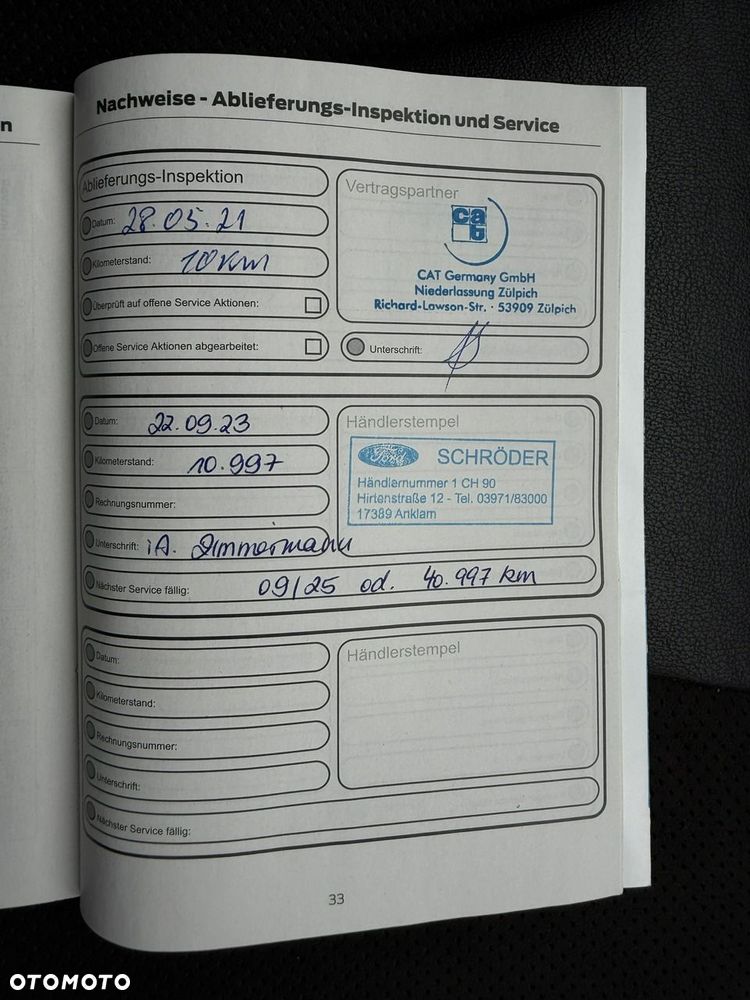 n
Nachweise - Ablieferungs-Inspektion und Service
Ablieferungs-Inspektion
Datum: 28.05.21
Kilometerstand: 10 km
Überprüft auf offene Service Aktionen:
Offene Service Aktionen abgearbeitet:
Vertragspartner
cat
CAT Germany GmbH
Niederlassung Zülpich
Richard-Lawson-Str. · 53909 Zülpich
Unterschrift:
Datum: 22.09.23
Kilometerstand: 10.997
Rechnungsnummer:
Unterschrift: iA. Zimmermann
Nächster Service fällig: 09/25 od. 40.997 km
Händlerstempel
Ford SCHRÖDER
Händlernummer 1 CH 90
Hirtenstraße 12 - Tel. 03971/83000
17389 Anklam
Datum:
Kilometerstand:
Rechnungsnummer:
Unterschrift:
Nächster Service fällig:
Händlerstempel
33
OTOMOTO